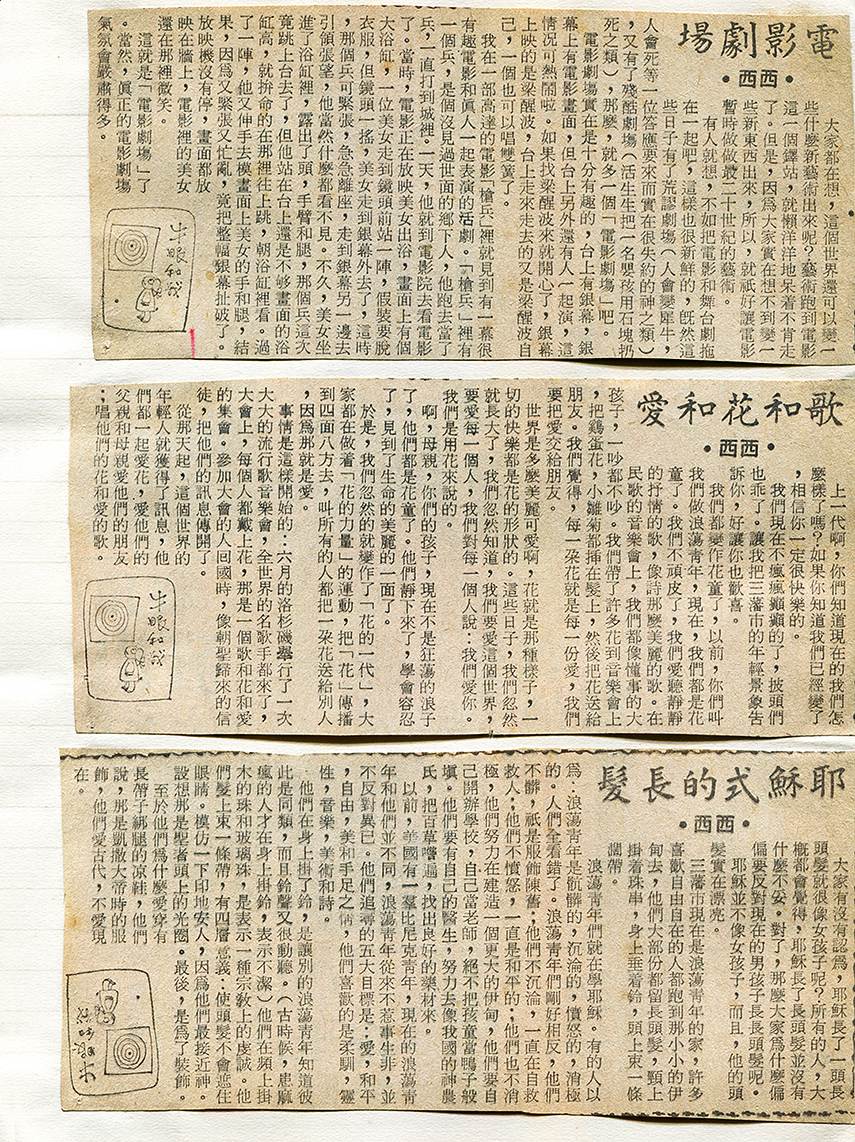 電影劇場
•西西•
大家都在想，這個世界還可以變一
些什麼新藝術出來呢？藝術跑到電影
這一個驛站，就懶洋洋地呆着不肯走
了。但是，因爲大家實在想不到變一
些新東西出來，所以，就祇好讓電影
暫時做做最二十世紀的藝術。
有人就想，不如把電影和舞台劇拖
在一起吧，這樣也很新鮮的，旣然這
些日子有了荒謬劇場（人會變犀牛，
人會死等一位答應要來而實在很失約的神之類）
，又有了殘酷劇塲（活生生把一名嬰孩用石塊扔
死之類），那麼，就多一個「電影劇塲」吧。
電影劇塲實在是十分有趣的，台上有銀幕，銀
幕上有電影畫面，但台上另外還有人一起演，這
情況可熱鬧啦。如果找梁醒波來就開心了，銀幕
上映的是梁醒波，台上走來走去的又是梁醒波自
己，一個也可以唱雙簧了。
我在一部高達的電影「槍兵」裡就見到有一幕很
有趣電影和眞人一起表演的活劇。「槍兵」裡有
一個兵，是個沒見過世面的鄉下人，他跑去當了
兵，一直打到城裡。一天，他就到電影院去看電影
了。當時，電影正在放映美女出浴，畫面上有個
大浴缸，一位美女走到鏡頭前站一陣，假裝要脫
衣服，但鏡頭一搖，美女走到銀幕外去了，這時
，那個兵可緊張，急急離座，走到銀幕另一邊去
引領張望，他當然什麼都看不見。不久，美女坐
進了浴缸裡，露出了頭，手臂和腿，那個兵這次
竟跳上台去了，但他站在台上還是不够畫面的浴
缸高，就拚命的在那裡往上跳，朝浴缸裡看。過
了一陣，他又伸手去摸畫面上美女的手和腿，結
果，因爲又緊張又忙亂，竟把整幅銀幕扯破了。
放映機沒有停，畫面都放
映在牆上，電影裡的美女
還在那裡微笑。
這就是「電影劇塲」了
。當然，眞正的電影劇塲
氣氛會嚴肅得多。
牛眼和我
歌和花和愛
•西西•
上一代啊，你們知道現在的我們怎
麼樣了嗎？如果你知道我們已經變了
，相信你一定很快樂的。
我們現在不瘋瘋癲癲的了，披頭們
也乖了。讓我把三藩市的年輕景象告
訴你，好讓你也歡喜。
我們都變作花童了，以前，你們叫
我們做浪蕩靑年，現在，我們都是花
童了。我們不頑皮了，我們愛聽靜靜
的抒情的歌，像詩那麼美麗的歌。在
民歌的音樂會上，我們都像懂事的大
孩子，一吵都不吵。我們帶了許多花到音樂會上
，把鷄蛋花，小雛菊都揷在髮上，然後把花送給
朋友。我們覺得，每一朵花就是每一份愛，我們
要把愛交給朋友。
世界是多麼美麗可愛啊，花就是那種樣子，一
切的快樂都是花的形狀的。這些日子，我們忽然
就長大了，我們忽然知道，我們要愛這個世界，
要愛每一個人，我們對每一個人說：我們愛你。
我們是用花來說的。
啊，母親，你們的孩子，現在不是狂蕩的浪子
了，他們都是花童了。他們靜下來了，學會容忍
了，見到了生命的美麗的一面了。
於是，我們忽然的就變作了「花的一代」，大
家都在做着「花的力量」的運動，把「花」傳播
到四面八方去，叫所有的人都把一朵花送給別人
，因爲那就是愛。
事情是這樣開始的：六月的洛杉磯舉行了一次
大大的流行歌音樂會，全世界的名歌手都來了，
大會上，每個人都戴上花，那是一個歌和花和愛
的集會。參加大會的人回國時，像朝聖歸來的信
徒，把他們的訊息傳開了。
從那天起，這個世界的
年輕人就獲得了訊息，他
們都一起愛花，愛他們的
父親和母親愛他們的朋友
；唱他們的花和愛的歌。
牛眼和我
耶穌式的長髮
•西西•
大家有沒有認爲，耶穌長了一頭長
頭髮就很像女孩子呢？所有的人，大
概都會覺得，耶穌長了長頭髮並沒有
什麼不妥。對了，那麼大家爲什麼偏
偏要反對現在的男孩子長長頭髮呢。
耶穌並不像女孩子，而且，他的頭
髮實在漂亮。
三藩市現在是浪蕩靑年的家，許多
喜歡自由自在的人都跑到那小小的伊
甸去，他們大部份都留長頭髮，頸上
掛着珠串，身上垂着鈴，頭上束一條
濶帶。
浪蕩靑年們就在學耶穌。有的人以
爲：浪蕩靑年是骯髒的，沉淪的，憤怒的，消極
的。人們全看錯了。浪蕩靑年們剛好相反，他們
不髒，祇是服飾陳舊；他們不沉淪，一直在自救
救人；他們不憤怒，一直是和平的；他們也不消
極，他們努力在建造一個更大的伊甸，他們要自
己開辦學校，自己當老師，絕不把孩童當鴨子般
塡。他們要有自己的醫生，努力去像我國的神農
氏，把百草嚐遍，找出良好的藥材來。
以前，美國有一羣比尼克靑年，現在的浪蕩靑
年和他們並不同，浪蕩靑年從來不惹事生非，並
不反對異已。他們追尋的五大目標是：愛，和平
，自由，美和手足之情，他們喜歡的是柔馴，靈
性，音樂，美術和詩。
他們在身上掛了鈴，是讓別的浪蕩靑年知道彼
此是同類，而且鈴聲又很動聽。（古時候，患痲
瘋的人才在身上掛鈴，表示不潔）他們在頸上掛
木的珠和玻璃珠，是表示一種宗敎上的虔誠。他
們髮上束一條帶，有四層意義：使頭髮不會遮住
眼睛。模仿一下印地安人，因爲他們最接近神。
設想那是聖者頭上的光圈。最後，是爲了裝飾。
至於他們爲什麼愛穿有
長帶子綁腿的凉鞋，他們
說，那是凱撒大帝時的服
飾，他們愛古代，不愛現
在。
牛眼和我